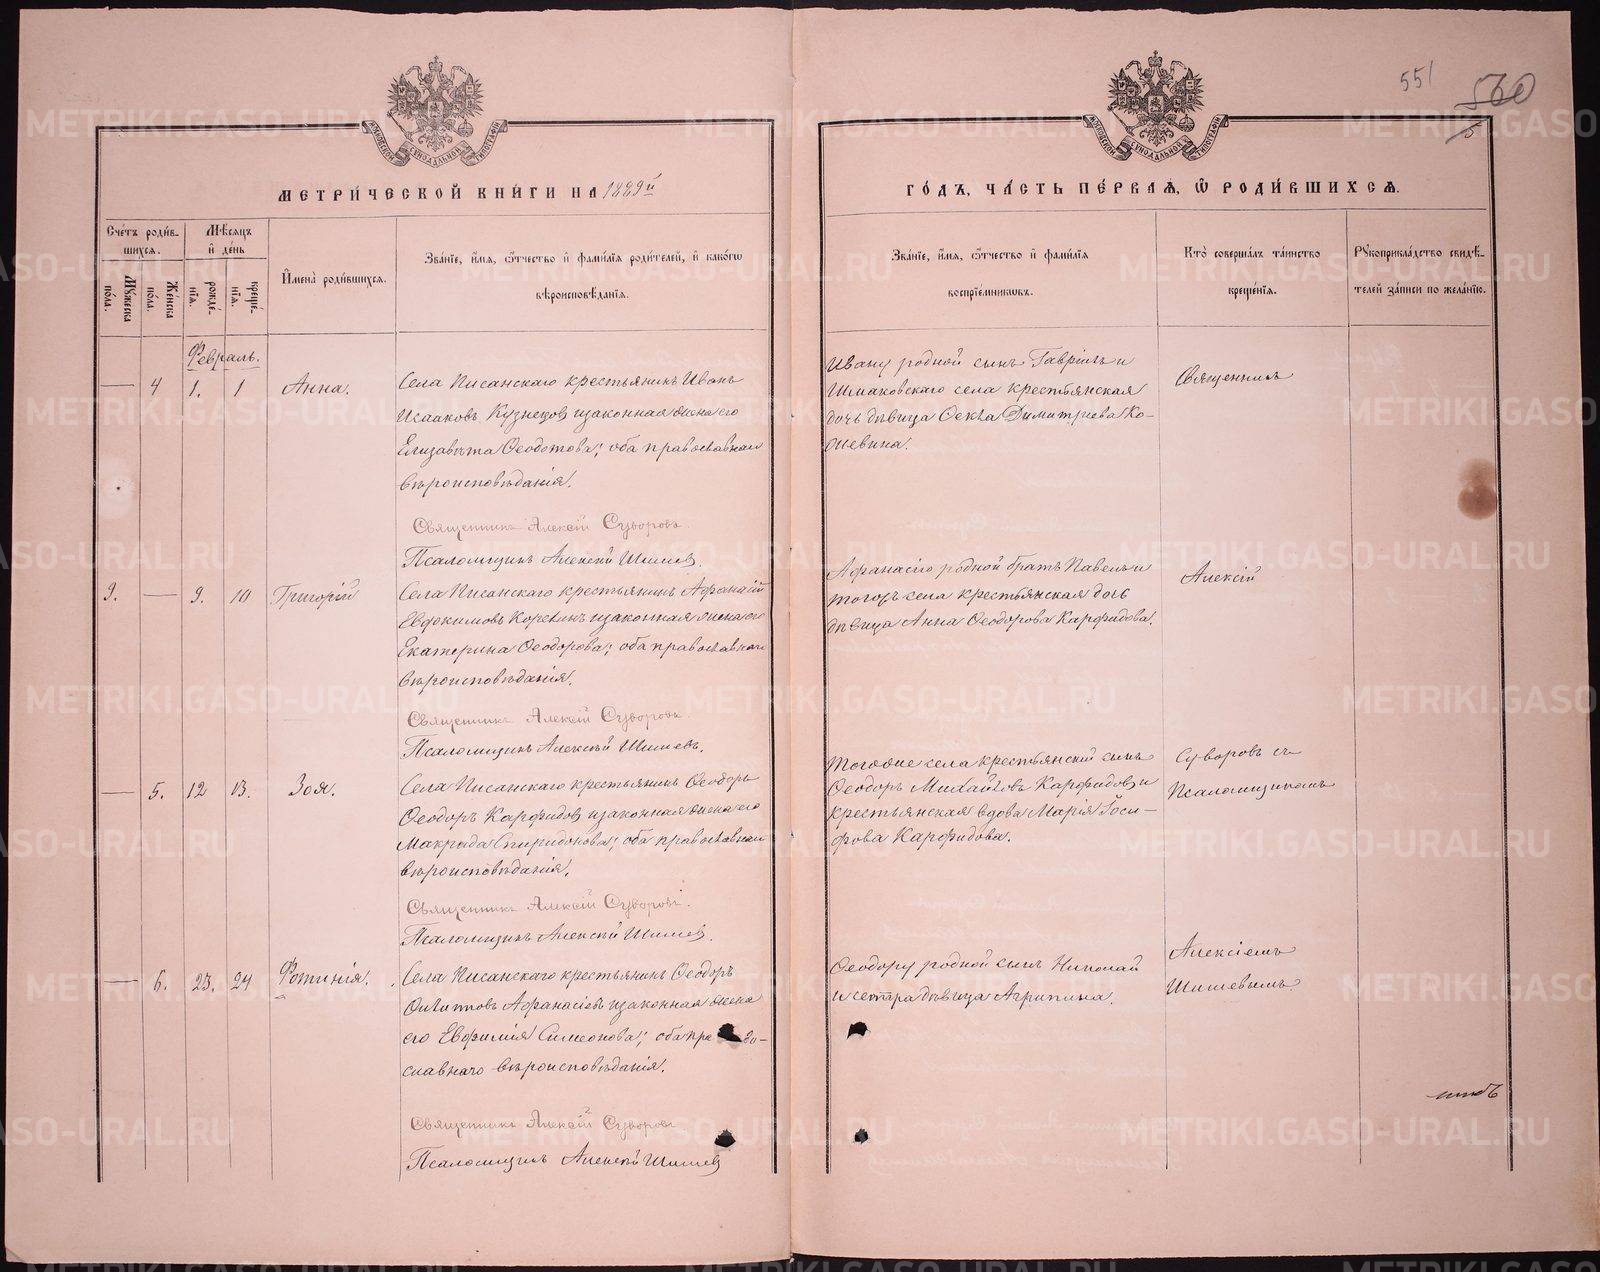 551 560
МОСКОВСКОЙ СѴНОДАЛЬНОЙ ТИПОГРАФІИ
МОСКОВСКОЙ СѴНОДАЛЬНОЙ ТИПОГРАФІИ
МЕТРИ́ЧЕСКОЙ КНИ́ГИ НА 1889й
ГО́ДЪ, ЧА́СТЬ ПЕ́РВАѦ, Ѿ РОДИ́ВШИХСѦ.
Сче́тъ роди́в-
шихсѧ.
Мꙋжеска по́ла.
Же́нска по́ла.
Мѣ́сѧцъ
и҆ де́нь
рожде́-
нїѧ.
креще́-
нїѧ.
И҆мена̀ роди́вшихсѧ.
Зва́нїе, и҆́мѧ, ѻ҆́тчество и҆ фами́лїѧ роди́телей, и҆ како́гѡ
вѣроисповѣ́данїѧ.
Зва́нїе, и҆́мѧ, ѻ҆́тчество и҆ фами́лїѧ
воспрїе́мникѡвъ.
Кто̀ соверша́лъ та́инство
креще́нїѧ.
Рꙋкоприкла́дство свидѣ́-
телей за́писи по жела́нїю.
Февраль.
— 4 1. 1 Анна.
Села Писанскаго крестьянинъ Иванъ
Исааковъ Кузнецов и законная жена его
Елизавета Ѳеодотова; оба православнаго
вѣроисповѣданія.
Священникъ Алексій Суворовъ.
Псаломщикъ Алексѣй Шишев.
Ивану родной сынъ Гавріилъ и
Шмаковскаго села крестьянская
дочь дѣвица Секла Димитріева Ко-
Священникъ
9. — 9. 10 Григорій
Села Писанскаго крестьянинъ Афанасій
Евдокимовъ Корекинъ и законная жена его
Екатерина Ѳеодорова; оба православнаго
вѣроисповѣданія.
Священникъ Алексій Суворовъ.
Псаломщикъ Алексѣй Шишевъ.
Афанасію родной братъ Павелъ и
тогожъ села крестьянская дочь
дѣвица Анна Ѳеодорова Карфидова.
Алексій
— 5. 12 13. Зоя.
Села Писанскаго крестьянинъ Ѳеодоръ
Ѳеодоръ Карфидов и законная жена его
Макрида Спиридонова; оба православнаго
вѣроисповѣданія.
Священникъ Алексій Суворовъ.
Псаломщикъ Алексѣй Шишев.
Тогоже села крестьянскій сынъ
Ѳеодоръ Михайловъ Карфидов и
крестьянская вдова Марія Іоси-
фова Карфидова.
Суворовъ съ
Псаломщикомъ
— 6. 23. 24 Фотинія.
Села Писанскаго крестьянинъ Ѳеодоръ
Филиповъ Афанасіевъ и законная жена
его Евфимія Симеонова; оба право-
славнаго вѣроисповѣданія.
Священникъ Алексій Суворовъ
Псаломщикъ Алексѣй Шишев
Ѳеодору родной сынъ Николай
и сестра дѣвица Агрипина.
Алексіемъ
Шишевымъ.
METRIKI.GASO-URAL.RU